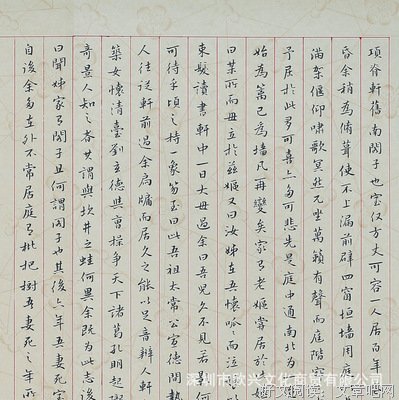 項脊軒舊南閤子也室仅方丈可容一人居百年
昏余稍為脩葺使不上漏前辟四窗垣墙周庭
滿架偃仰嘯歌冥然兀坐萬籟有聲而庭階寂
予居於此多可喜亦多可悲先是庭中通南北為
始為籬已為墙凡再變矣家有老嫗嘗居於此
曰某所而母立於茲嫗又曰汝姊在吾懷呱々而泣
束髮讀書軒中一日大母過余曰吾兒久不見若影何
可待乎頃之持一象笏至曰此吾祖太常公宣德間執
人往從軒前過余扃牖而居久之能以足音辨人軒
築女懷清臺劉玄德與曹操爭天下諸葛孔明起隴
奇景人知之者其謂與坎井之蛙何異余既為此志後
曰聞姊家有閤子且何謂閤子也其後六年吾妻死室
自後余多在外不常居庭有枇杷樹吾妻死之年所
深圳市欧兴文化商贸有限公司
好文阅读：文章吧网